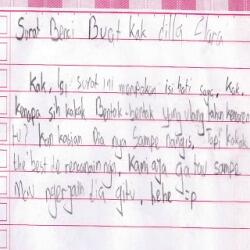 Surat Benci Buat Kak dilla Clara
Kak, Isi surat ini merupakan isi hati saya, Kak.
Kenapa sih kakak Bentak-bentak yang ulang tahun kemaren
Kan kasian Dia nya Sampe nangis, Tapi kakak
the best lo rencanain nya, Kami aja ga tau sampe
Mau ngerjain dia gitu, hehe :p